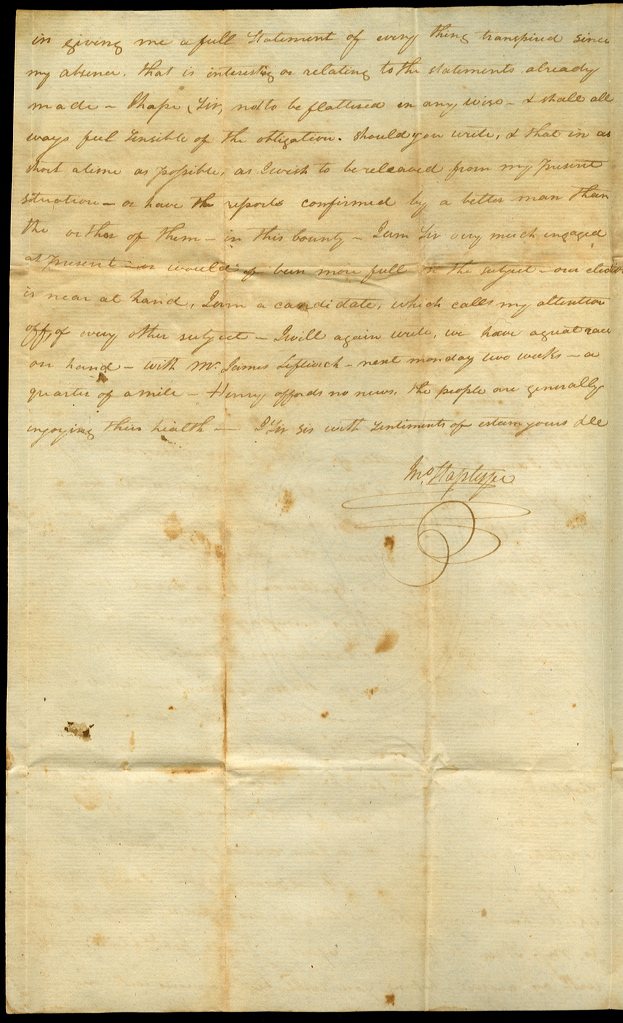 in giving me a full Statement of every thing transpired since
my absence. that is interesting or relating to the statements already
made – I hope Sir, not to be flattered in any wise – & shall all
ways feel sensible of the obligation. should you write, & that in as
short a time as possible, as I wish to be released from my present
situation – or have the reports confirmed by a better man than
the author of them – in this county – I am Sir very much engaged
at present – or would of been more full on the subject – our election
is near at hand, I am a candidate, which calls my attention
off, of every other subject – I will again write, we have a great race
on hand – with Mr. James Leftwich – next monday two weeks – a
quarter of a mile – Henry affords no news. the people are generally
injoying their health – with sentiments of esteem yours &c
Jno. Staples